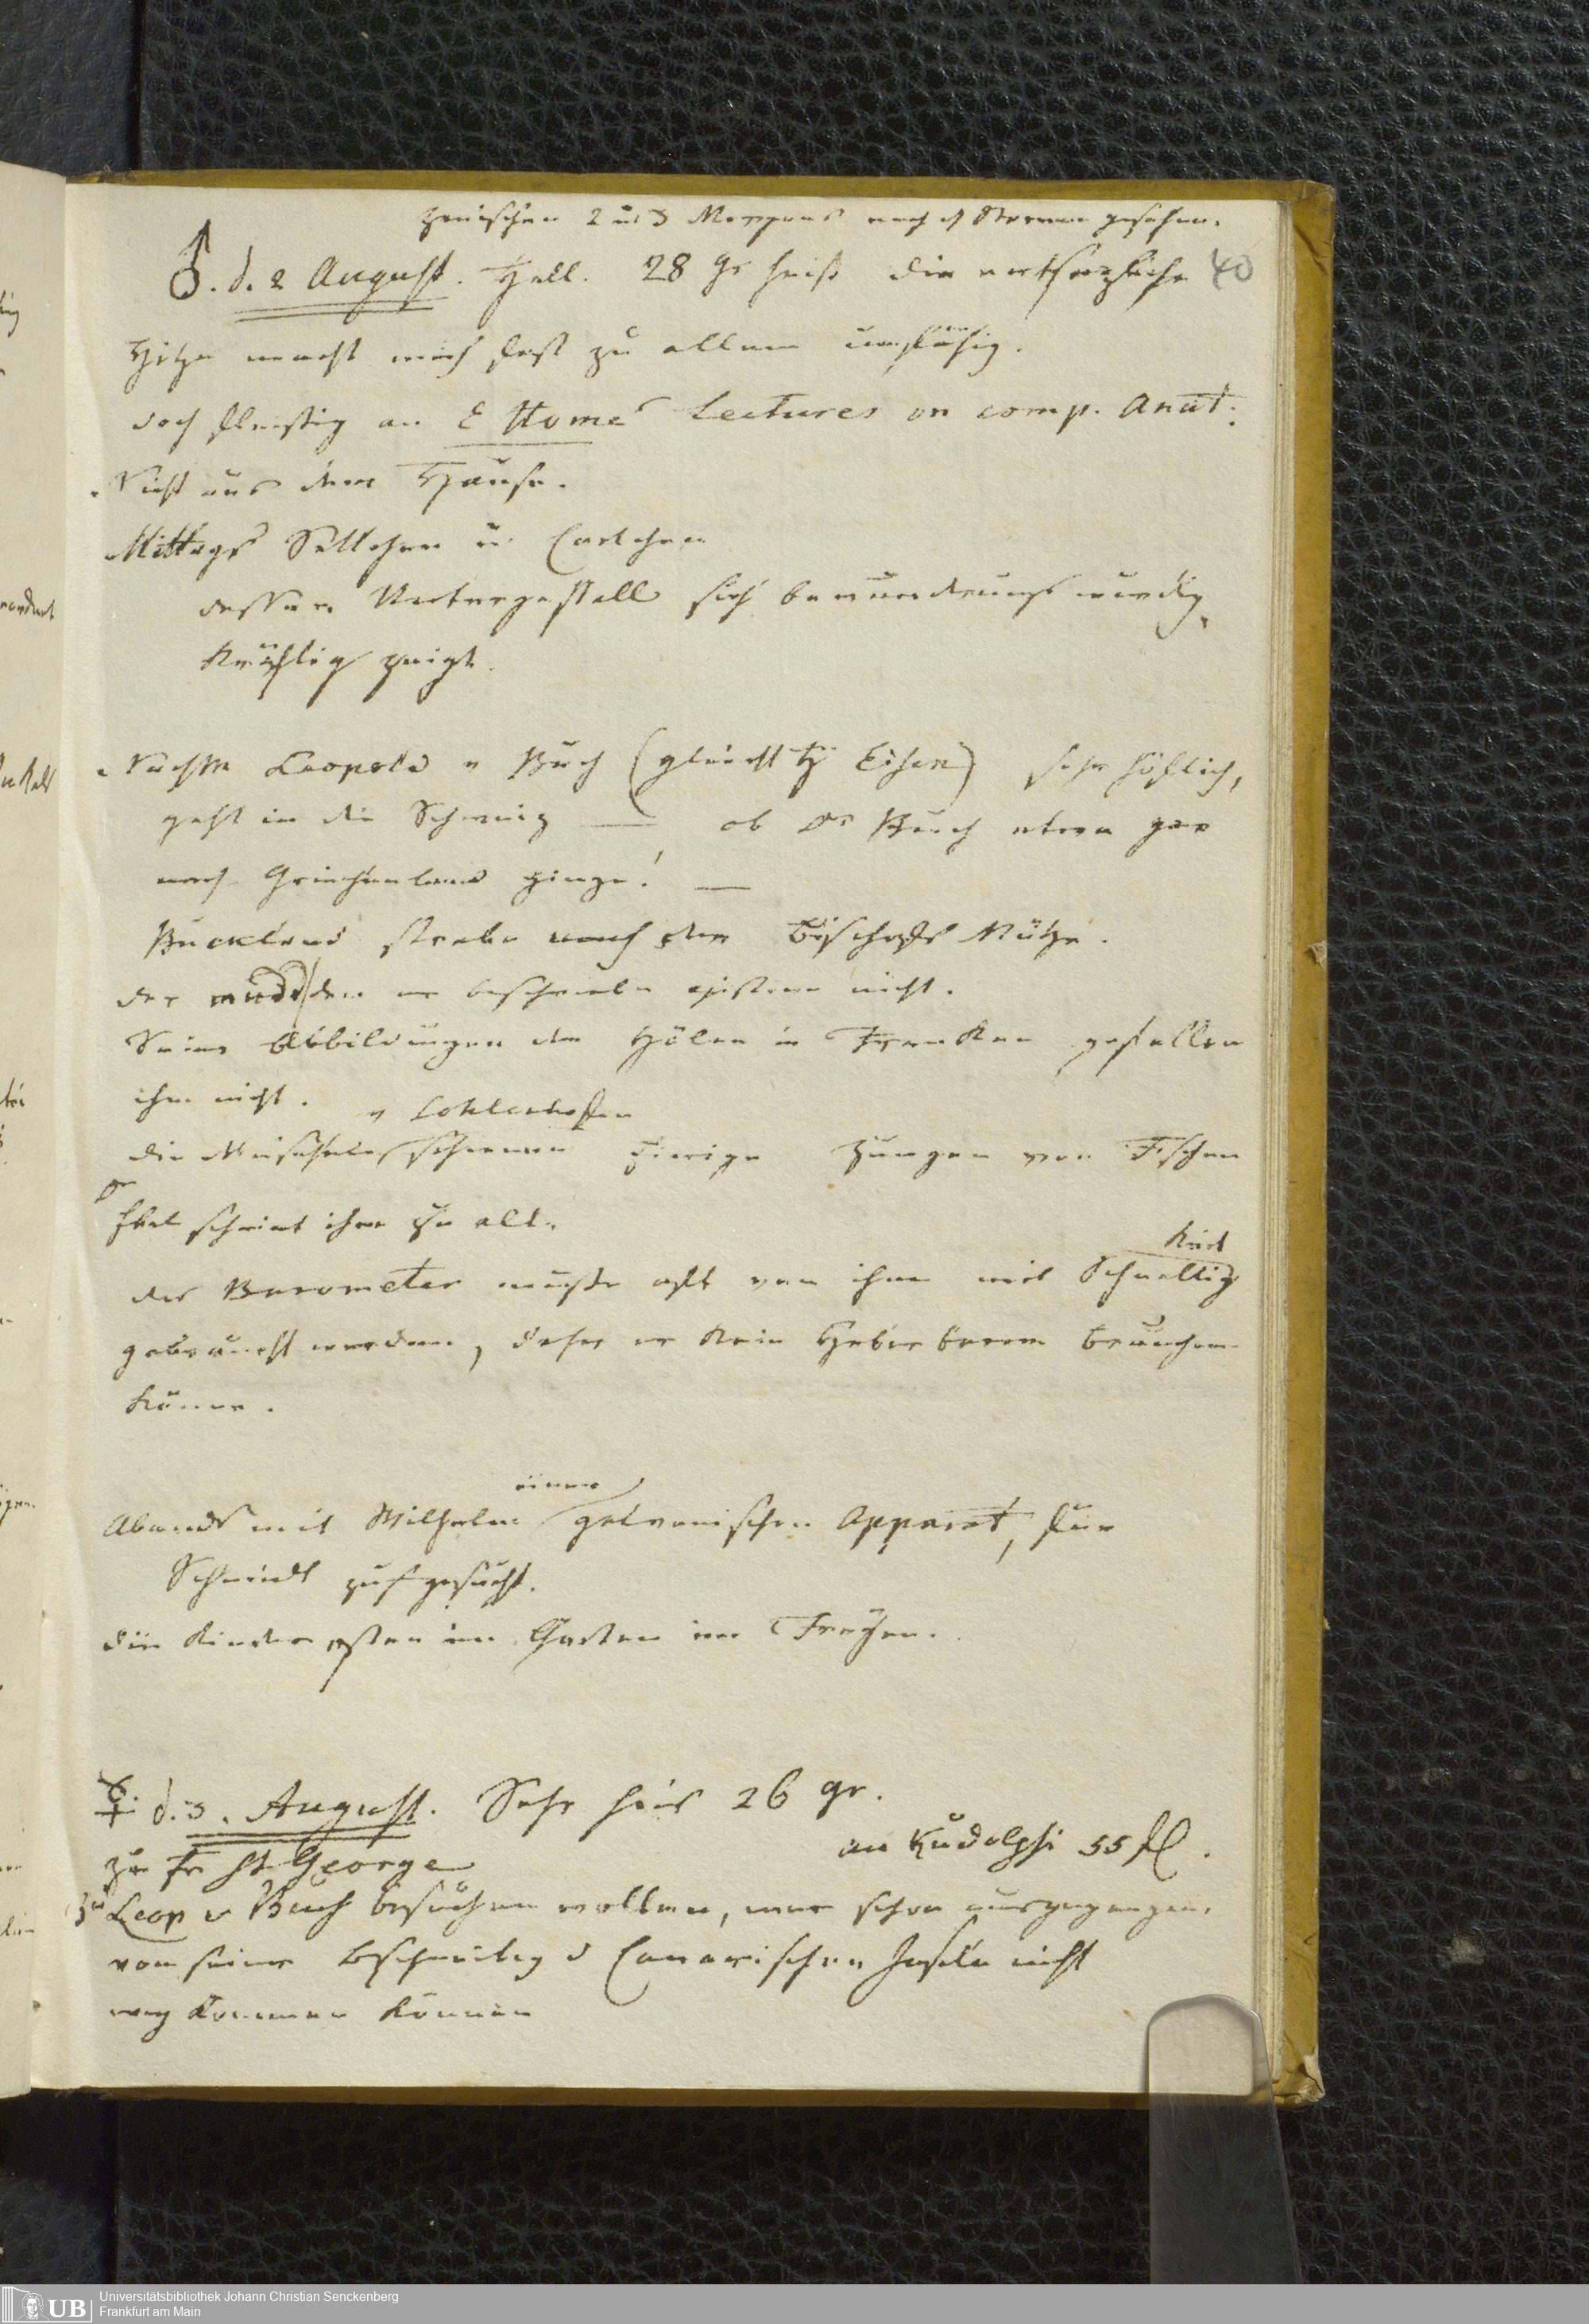 zwischen 2 u 3 Morgens nach d Sternen gesehen.
♂. d. 2 August. Hell. 28 gr heiß die entsezliche 40
Hitze macht mich fast zu allem unfähig.
doch fleissig an E Home's Lectures on comp. Anat.
Nicht aus dem Hause.
Mittags Settchen u Carlchen
dessen Untergestell sich bewunderungswürdig
kräftig zeigt.
Leopold v Buch (gleicht H ) sehr höflich,
geht in die Schweiz — ob Dr Buch etwa gar
nach Griechenland ginge! —
Buckland strebe nach der Bischofs Mütze.
der den er beschreibe existire nicht.
Seine Abbildungen der Hölen in Franken gefallen
ihm nicht.
die v Solenhofen schienen Zungen von Fischen
scheint ihm zu alt.
der Barometer müsste oft von ihm mit Schnellig
keit
gebraucht werden, daher er kein Heberbarom brauchen
könne.
Abends mit Wilhelm einen galvanischen Apparat, für
Schmidt gesucht.
die Kinder essen im Garten im Freyen.
☿ d. 3. August. Sehr heis 26 gr.
an Rudolphi 55 fl.
zu Fr St George
Zu Leop v Buch besuchen wollen, war schon ausgegangen.
von seiner Beschreibg d Canarischen Inseln nicht
weg kommen können
Universitätsbibliothek Johann Christian Senckenberg
Frankfurt am Main
UB